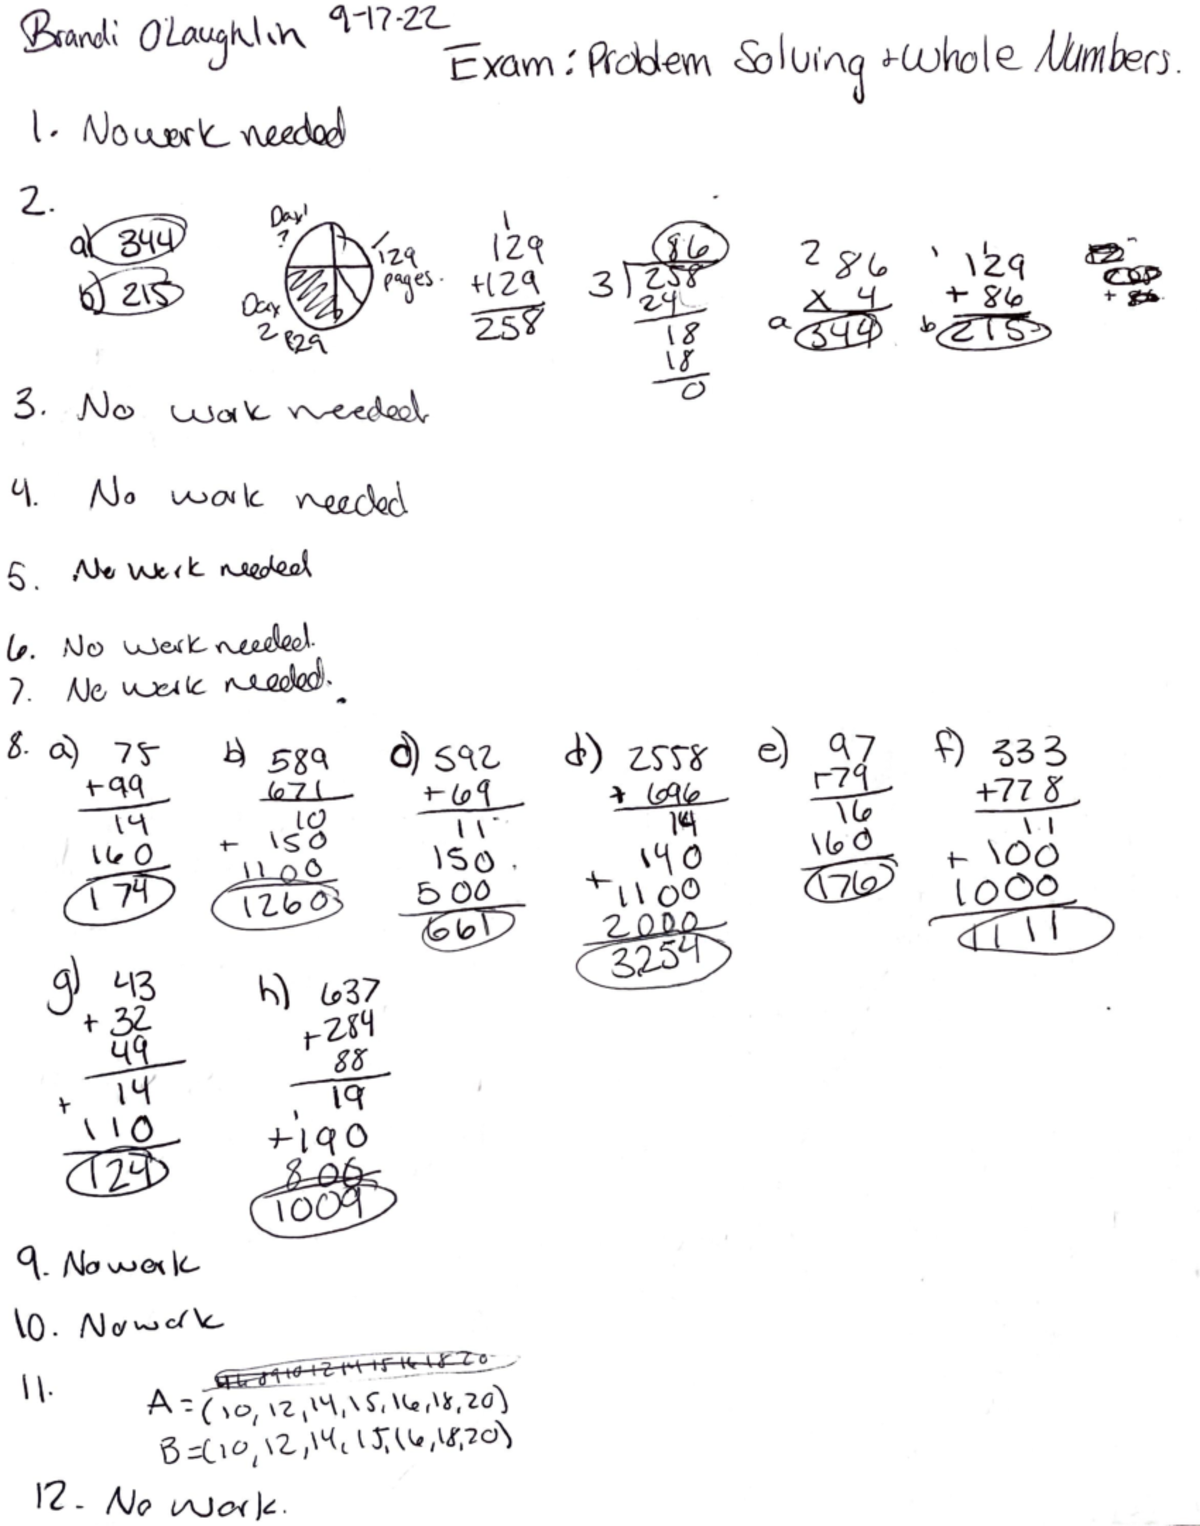 Brandi O'Laughlin 9-17-22
Exam: Problem Solving + Whole Numbers.
1. No work needed
2.
a) 344
b) 215
Day 1
?
129
pages.
Day
2
129
1
129
+129
258
86
3 258
24
18
18
0
2 86
x 4
a 344
1 129
+ 86
b 215
3. No work needed
4. No work needed
5. No work needed
6. No work needed.
7. No work needed.
8. a) 75
+99
14
160
174
b) 589
671
10
+ 150
1100
1260
c) 592
+69
11
150
500
661
d) 2558
+ 696
14
140
+ 1100
2000
3254
e) 97
+79
16
160
176
f) 333
+778
11
+ 100
1000
1111
g) 43
+ 32
49
+ 14
110
124
h) 637
+284
88
19
+190
800
1009
9. No work
10. No work
11.
A=(10,12,14,15,16,18,20)
B=(10,12,14,15,16,18,20)
12- No work.